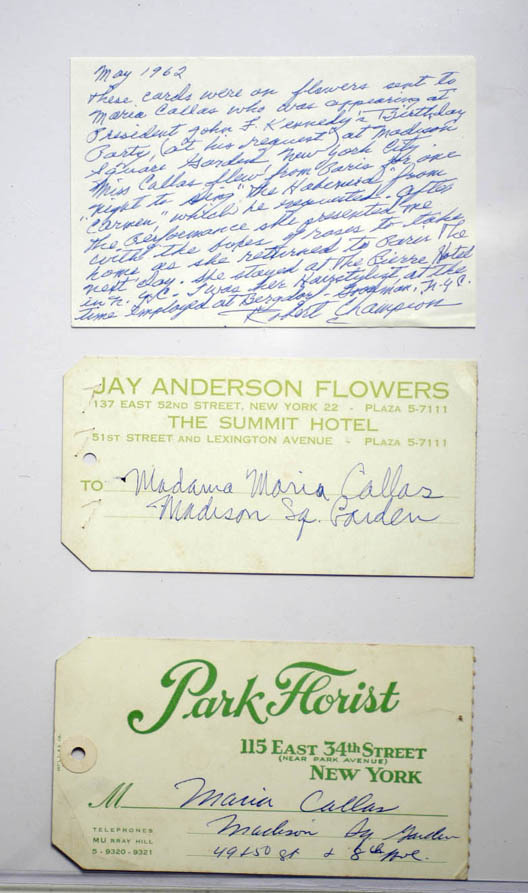 May 1962
these cards were on flowers sent to
Maria Callas who was appearing at
President John F. Kennedy's "Birthday
Party, (at his request) at Madison
Square Garden New York City.
Miss Callas flew from Paris for one
night to sing "the Habenera" from
"Carmen," which he requested. After
the Performance she presented me
with the boxes of roses to take
home as she returned to Paris the
next day. She stayed at the Pierre Hotel
in N.Y.C. I was her Hairstylist at the
time employed at Bergdorf-Goodman, N.Y.C.
Robert Champion
JAY ANDERSON FLOWERS
137 EAST 52ND STREET, NEW YORK 22 - PLAZA 5-7111
THE SUMMIT HOTEL
51ST STREET AND LEXINGTON AVENUE - PLAZA 5-7111
TO Madama Maria Callas
Madison Sq. Garden
Park Florist
115 EAST 34th STREET
(NEAR PARK AVENUE)
NEW YORK
M Maria Callas
TELEPHONES
MURRAY HILL
5-9320-9321
Madison Sq Garden
49&50 St & 8th Ave.